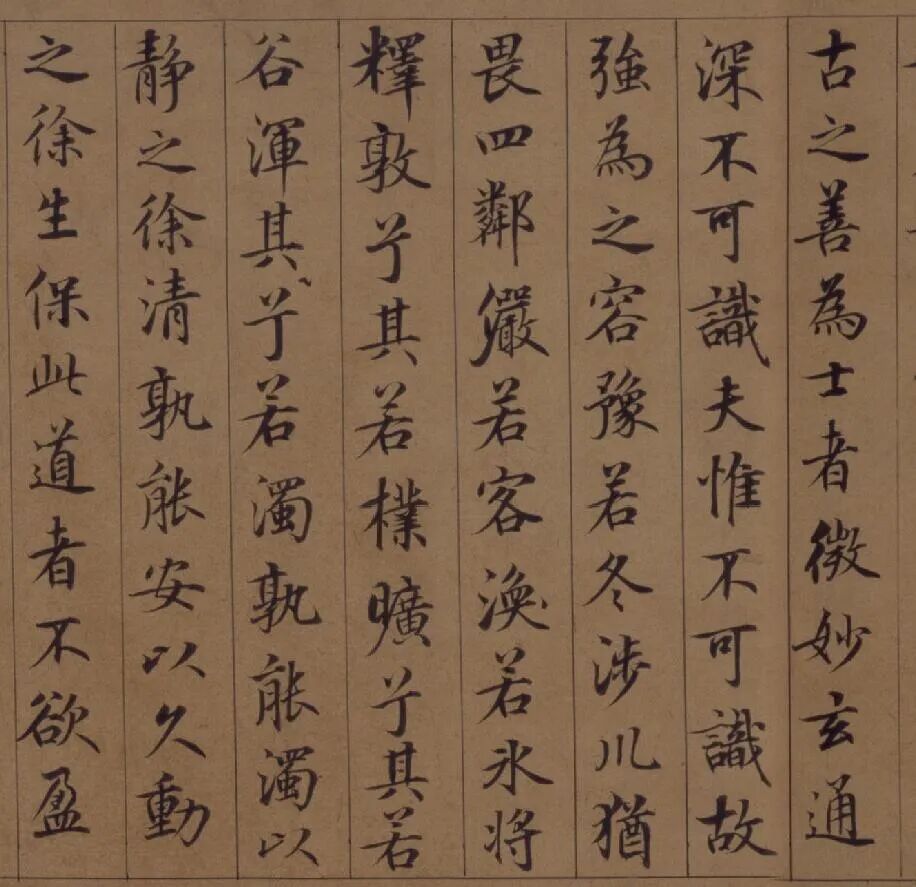 古之善為士者微妙玄通
深不可識夫惟不可識故
強為之容豫若冬涉川猶
畏四鄰儼若客渙若氷將
釋敦兮其若樸曠兮其若
谷渾其兮若濁孰能濁以
静之徐清孰能安以久動
之徐生保此道者不欲盈